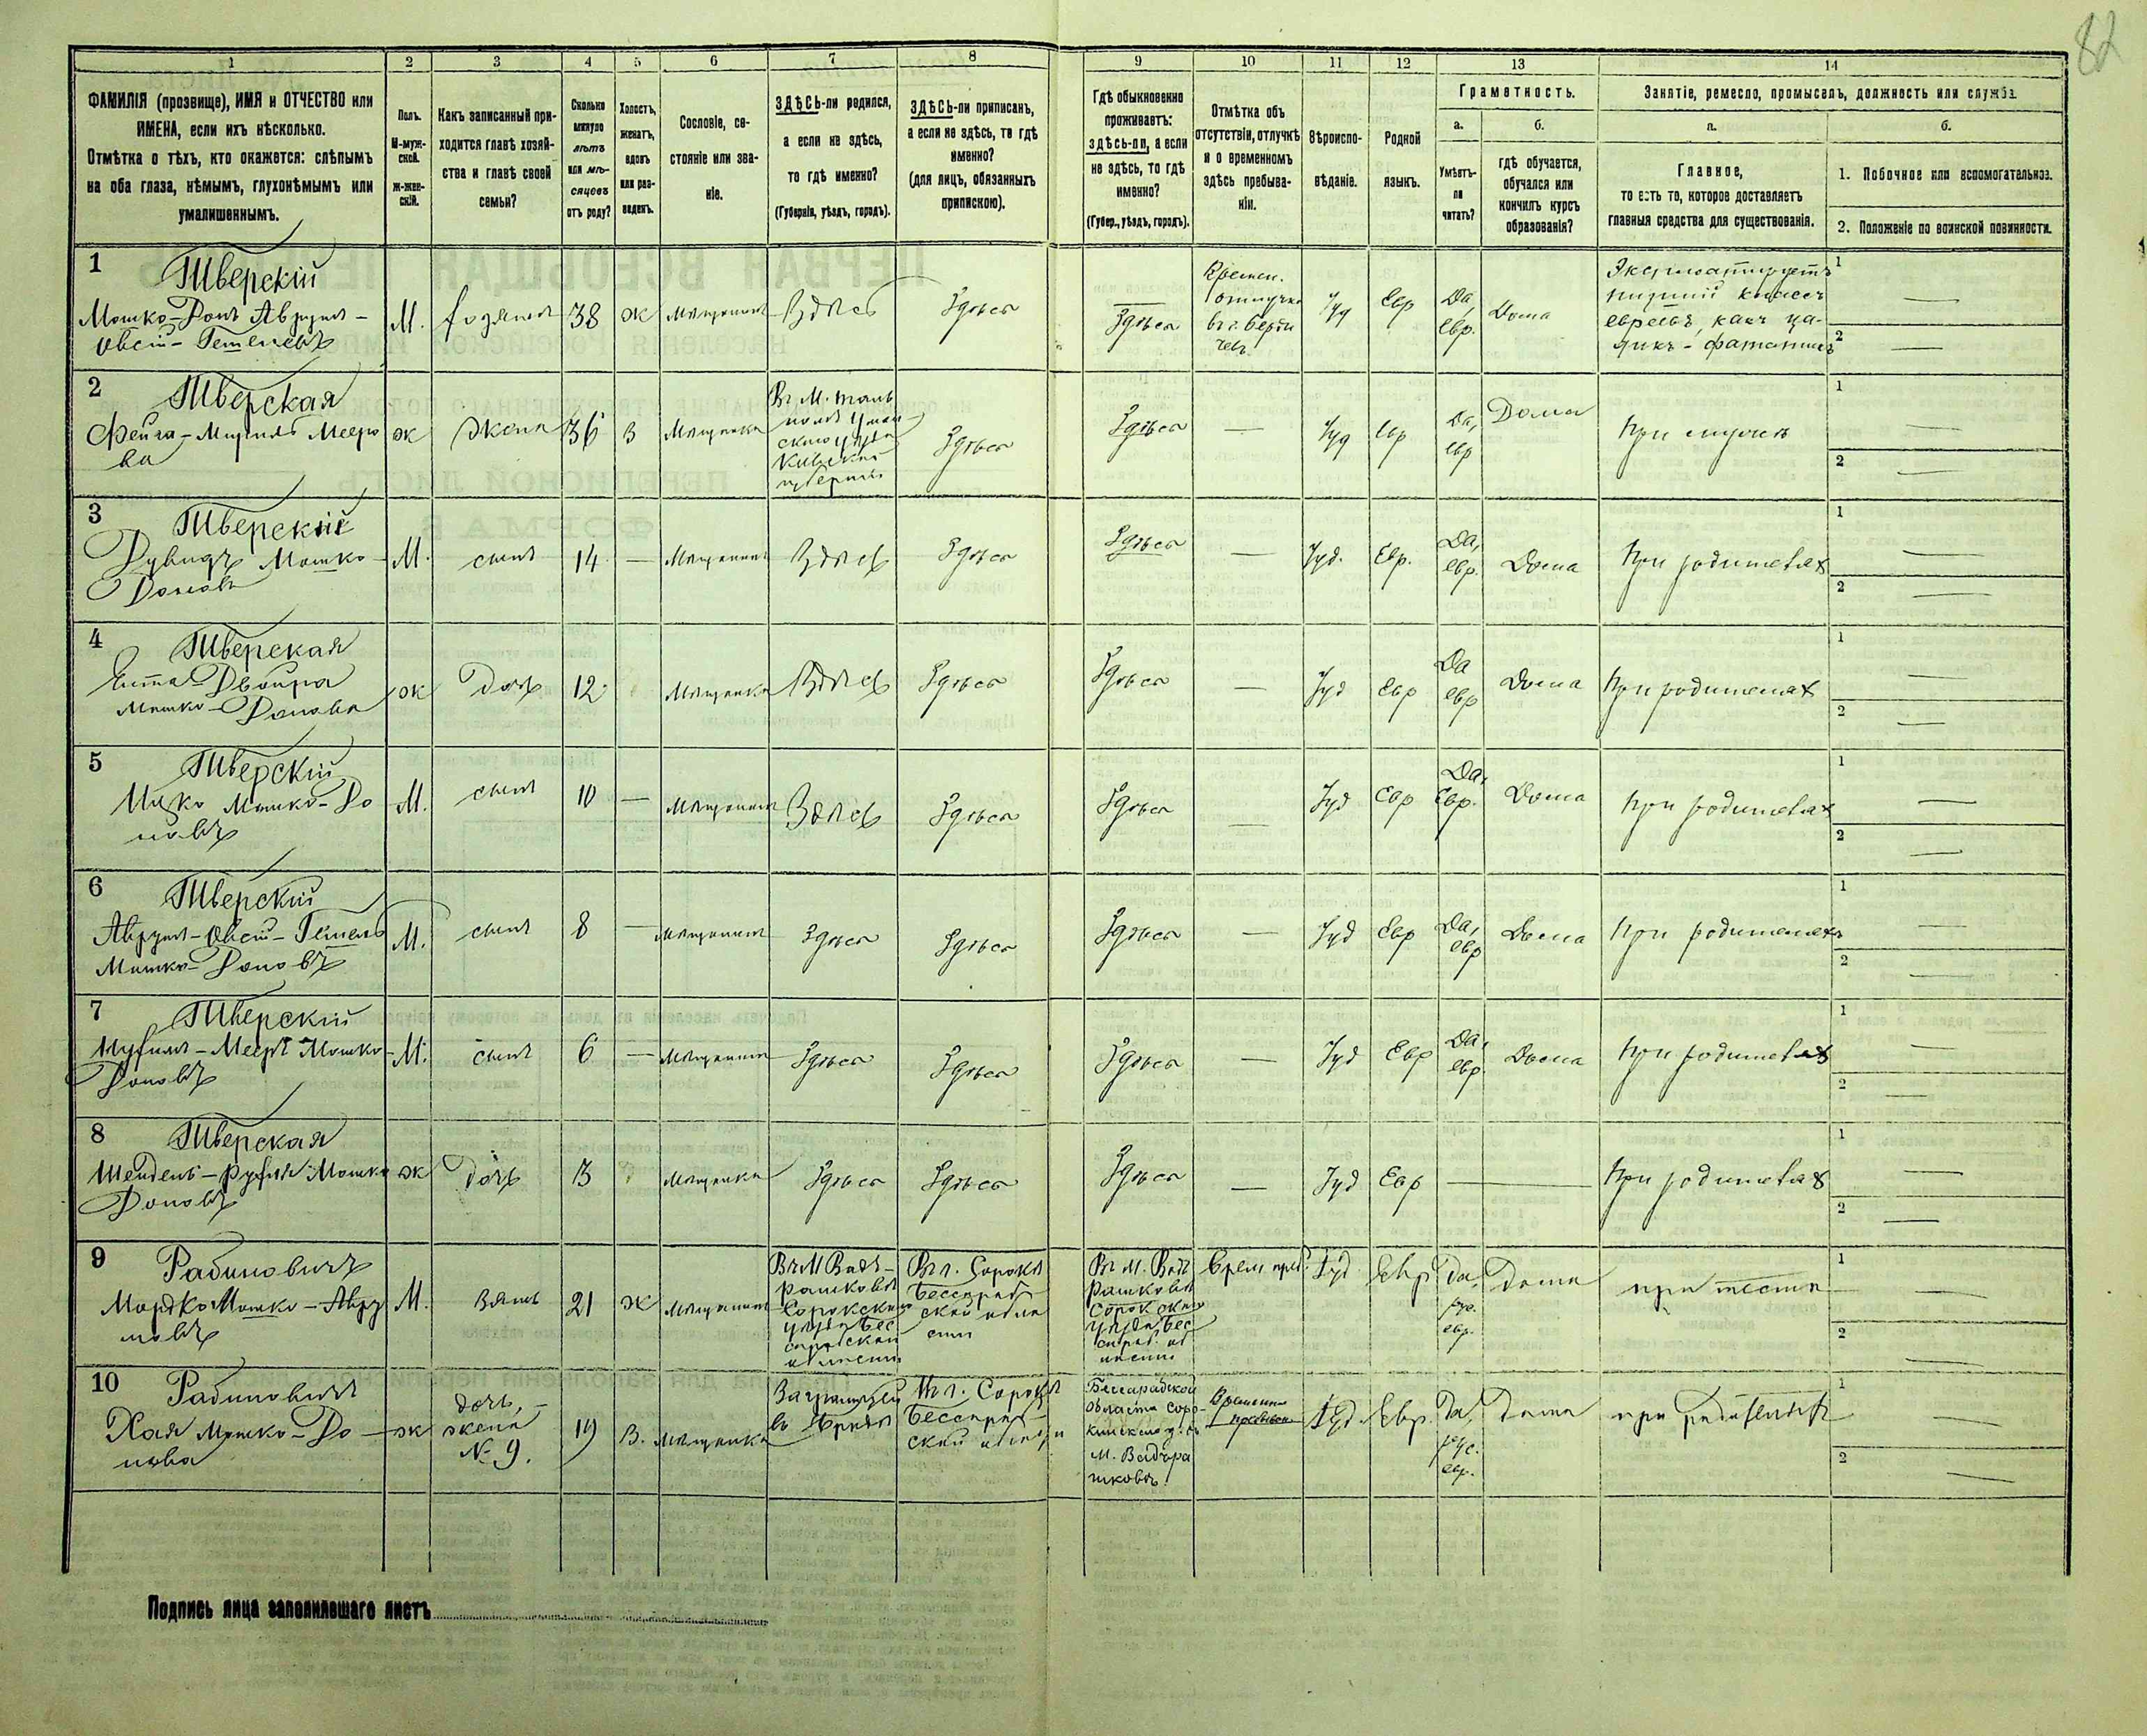 82
1 2 3 4 5 6 7 8 9 10 11 12 13 14
ФАМИЛІЯ (прозвище), ИМЯ и ОТЧЕСТВО или
ИМЕНА, если ихъ нѣсколько.
Отмѣтка о тѣхъ, кто окажется: слѣпымъ
на оба глаза, нѣмымъ, глухонѣмымъ или
умалишеннымъ.
Полъ.
М-муж-
ской.
Ж-жен-
скій.
Какъ записанный при-
ходится главѣ хозяй-
ства и главѣ своей
семьи?
Сколько
минуло
лѣтъ
или мѣ-
сяцевъ
отъ роду?
Холостъ,
женатъ,
вдовъ
или раз-
веденъ.
Сословіе, со-
стояніе или зва-
ніе.
ЗДѢСЬ-ли родился,
а если не здѣсь,
то гдѣ именно?
(Губернія, уѣздъ, городъ).
ЗДѢСЬ-ли приписанъ,
а если не здѣсь, то гдѣ
именно?
(для лицъ, обязанныхъ
припискою).
Гдѣ обыкновенно
проживаетъ:
здѣсь-ли, а если
не здѣсь, то гдѣ
именно?
(Губер., уѣздъ, городъ).
Отмѣтка объ
отсутствіи, отлучкѣ
и о временномъ
здѣсь пребыва-
ніи.
Вѣроиспо-
вѣданіе.
Родной
языкъ.
Грамотность.
а.
Умѣетъ-
ли
читать?
б.
гдѣ обучается,
обучался или
кончилъ курсъ
образованія?
Занятіе, ремесло, промыселъ, должность или служба.
а.
Главное,
то есть то, которое доставляетъ
главныя средства для существованія.
б.
1. Побочное или вспомогательное.
2. Положеніе по воинской повинности.
1 Тверскій
Мошко-Донъ Аврум-
М. хозяинъ 38 Ж Мѣщанинъ Здѣсь Здѣсь Здѣсь
Времен.
отлучка
въ г. Берди
чевъ
Іуд Евр Да,
евр. Дома
Эксплоатируетъ
низшій классъ
евреевъ, какъ ца-
дикъ-фанатикъ
1 —
2 —
2 Тверская
ж Жена 36 З Мѣщанка
Въ М. Таль
номъ Уман
скаго уѣзда
Кіевской
губерніи
Здѣсь Здѣсь — Іуд Евр Да,
евр Дома При мужѣ
1 —
2 —
3 Тверскій
Дувидъ Мошко-
Доновъ
М. сынъ 14 — Мѣщанинъ Здѣсь Здѣсь Здѣсь — Іуд. Евр. Да,
евр. Дома При родителяхъ
1 —
2 —
4 Тверская
Двойра
Мошко-Донова
ж Дочь 12 Мѣщанка Здѣсь Здѣсь Здѣсь — Іуд Евр Да
евр Дома При родителяхъ
1 —
2 —
5 Тверскій
Мошко-До
новъ
М. сынъ 10 — Мѣщанинъ Здѣсь Здѣсь Здѣсь — Іуд Евр Да,
Евр. Дома При родителяхъ
1 —
2 —
6 Тверскій
Мошко-Доновъ
М. сынъ 8 — Мѣщанинъ Здѣсь Здѣсь Здѣсь — Іуд Евр Да,
евр Дома При родителяхъ
1 —
2 —
7 Тверскій
Нухим-Мееръ Мошко-
Доновъ
М. сынъ 6 — Мѣщанинъ Здѣсь Здѣсь Здѣсь — Іуд Евр Да,
евр. Дома При родителяхъ
1 —
2 —
8 Тверская
Мошко
Доновъ
ж Дочь 3 Мѣщанка Здѣсь Здѣсь Здѣсь — Іуд Евр — При родителяхъ
1 —
2 —
9 Рабиновичъ
Мордко Мошко-Авру
мовъ
М. Зять 21 Ж Мѣщанинъ
Въ М Вадъ-
рашковѣ
Сорокскаго
уѣзда Бес
сарабской
области
Въ г. Сороки
Бессараб-
ской обла
сти
Въ М. Вадъ
рашковѣ
Сорокскаго
уѣзда Бес
сараб. об
ласти
Врем преб. Іуд Евр Да,
рус.
евр.
Дома при тестѣ
1 —
2 —
10 Рабиновичъ
Хая Мошко-До-
нова
ж дочь,
жена
№ 9. 19 З. Мѣщанка
Заграницей
Въ г. Сороки
Бессараб-
ской области
Бессарабской
области Соро-
М. Вадъра
шковъ.
Временно
пребываетъ
Іуд Евр. Да,
рус.
евр.
Дома при родителяхъ
1 —
2 —
Подпись лица заполнившаго листъ